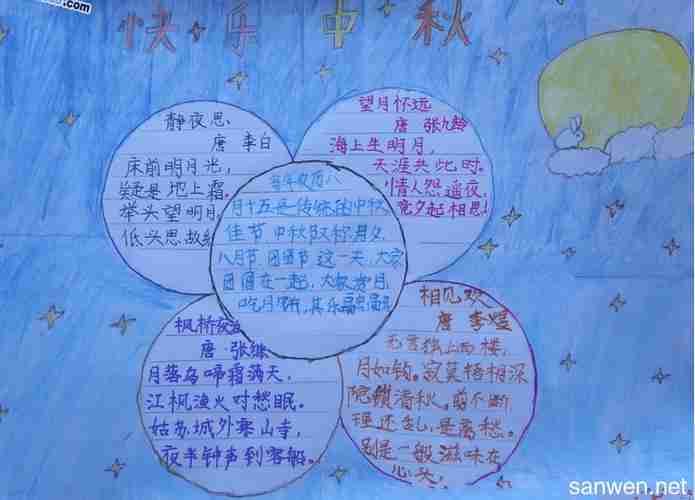 .com
快 乐 中 秋
静夜思
唐 李白
床前明月光，
疑是地上霜。
举头望明月，
低头思故
望月怀远
唐 张九龄
海上生明月，
天涯共此时。
情人怨遥夜，
竟夕起相思！
月十五是传统的中秋
佳节，中秋又称月夕，
八月节，团圆节这一天，大家
团圆在一起，大家赏月，
吃月饼，其乐
枫桥夜泊
唐·张继
月落乌啼霜满天，
江枫渔火对愁眠。
姑苏城外寒山寺，
夜半钟声到客船。
相见欢
唐 李煜
无言独上西楼，
月如钩。寂寞梧桐深
院锁清秋。剪不断
理还乱，是离愁。
别是一般滋味在
心头，
sanwen.net